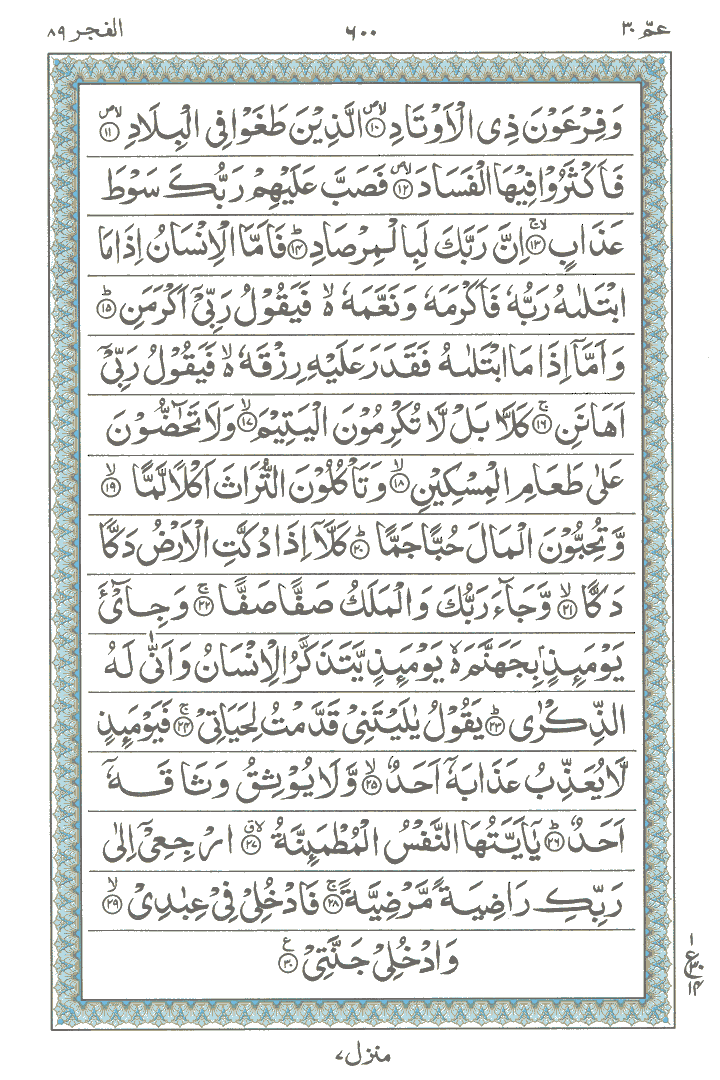 عمّ ٣٠ ٦٠٠ الفجر ٨٩
وَفِرْعَوْنَ ذِى الْاَوْتَادِ ۙ۠ ١٠ الَّذِيْنَ طَغَوْا فِى الْبِلَادِ ۙ۠ ١١
فَاَكْثَرُوْا فِيْهَا الْفَسَادَ ۙ۠ ١٢ فَصَبَّ عَلَيْهِمْ رَبُّكَ سَوْطَ
عَذَابٍ ۙۚ ١٣ اِنَّ رَبَّكَ لَبِالْمِرْصَادِ ؕ ١٤ فَاَمَّا الْاِنْسَانُ اِذَا مَا
ابْتَلٰىهُ رَبُّهٗ فَاَكْرَمَهٗ وَنَعَّمَهٗ ۙ۬ فَيَقُوْلُ رَبِّىْٓ اَكْرَمَنِ ؕ ١٥
وَاَمَّآ اِذَا مَا ابْتَلٰىهُ فَقَدَرَ عَلَيْهِ رِزْقَهٗ ۙ۬ فَيَقُوْلُ رَبِّىْٓ
اَهَانَنِ ۚ ١٦ كَلَّا بَلْ لَّا تُكْرِمُوْنَ الْيَتِيْمَ ۙ ١٧ وَلَا تَحٰٓضُّوْنَ
عَلٰى طَعَامِ الْمِسْكِيْنِ ۙ ١٨ وَتَاْكُلُوْنَ التُّرَاثَ اَكْلًا لَّمًّا ۙ ١٩
وَّتُحِبُّوْنَ الْمَالَ حُبًّا جَمًّا ؕ ٢٠ كَلَّآ اِذَا دُكَّتِ الْاَرْضُ دَكًّا
دَكًّا ۙ ٢١ وَّجَآءَ رَبُّكَ وَالْمَلَكُ صَفًّا صَفًّا ۚ ٢٢ وَجِاىْٓءَ
يَوْمَئِذٍۢ بِجَهَنَّمَ ۬ۙ يَوْمَئِذٍ يَّتَذَكَّرُ الْاِنْسَانُ وَاَنّٰى لَهُ
الذِّكْرٰى ؕ ٢٣ يَقُوْلُ يٰلَيْتَنِىْ قَدَّمْتُ لِحَيَاتِىْ ۚ ٢٤ فَيَوْمَئِذٍ
لَّا يُعَذِّبُ عَذَابَهٗٓ اَحَدٌ ۙ ٢٥ وَّلَا يُوْثِقُ وَثَاقَهٗٓ
اَحَدٌ ؕ ٢٦ يٰٓاَيَّتُهَا النَّفْسُ الْمُطْمَئِنَّةُ ۖ ٢٧ ارْجِعِىْٓ اِلٰى
رَبِّكِ رَاضِيَةً مَّرْضِيَّةً ۚ ٢٨ فَادْخُلِىْ فِىْ عِبٰدِىْ ۙ ٢٩
وَادْخُلِىْ جَنَّتِىْ ٣٠
١
ع ٣٠
١٤
منزل ٧